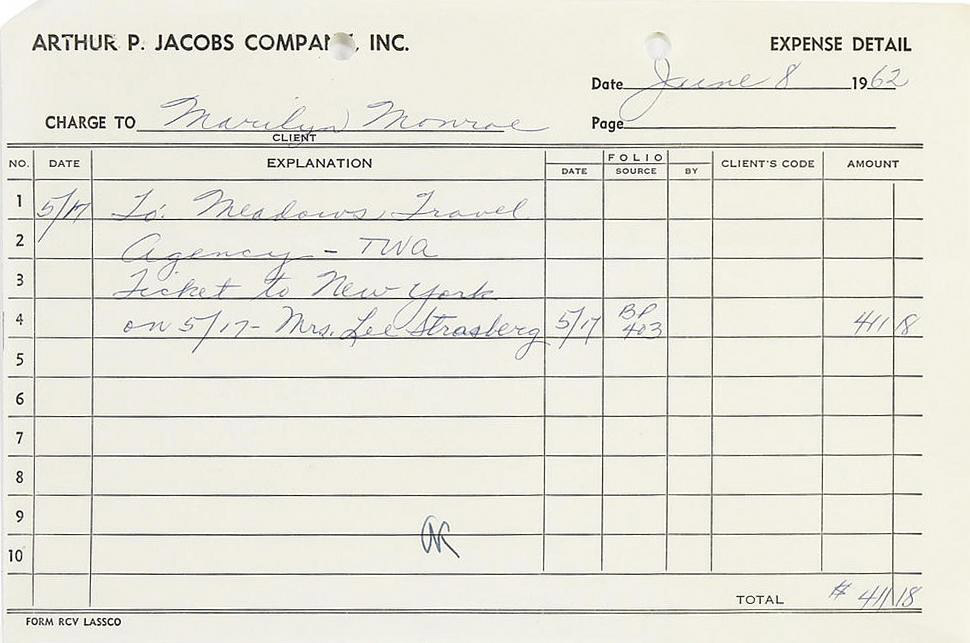 ARTHUR P. JACOBS COMPANY, INC.
EXPENSE DETAIL
Date June 8 1962
CHARGE TO Marilyn Monroe
Page
CLIENT
NO. DATE EXPLANATION FOLIO DATE SOURCE BY CLIENT'S CODE AMOUNT
1 5/17 To: Meadows Travel
2 Agency - TWA
3 Ticket to New York
4 on 5/17 - Mrs. Lee Strasberg 5/17 BP 403 411 18
5
6
7
8
9
10
TOTAL # 411 18
FORM RCV LASSCO